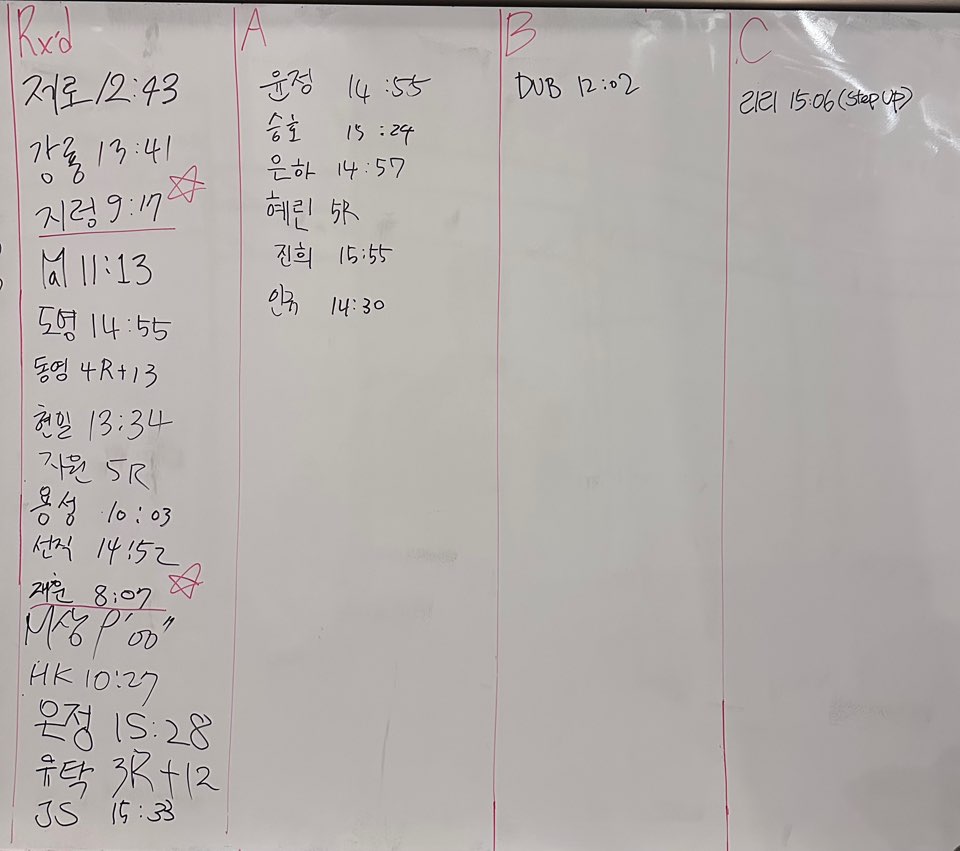 Rx'd
제로 12:43
강룡 13:41
지령 9:17
Mal 11:13
도영 14:55
동영 4R+13
현일 13:34
지원 5R
용성 10:03
선직 14:52
재훈 8:07
M상 9'00"
HK 10:27
은정 15:28
유탁 3R+12
JS 15:33
A
윤정 14:55
승호 15:29
은하 14:57
혜린 5R
진희 15:55
14:30
B
DUB 12:02
C
리리 15:06 (Step UP)